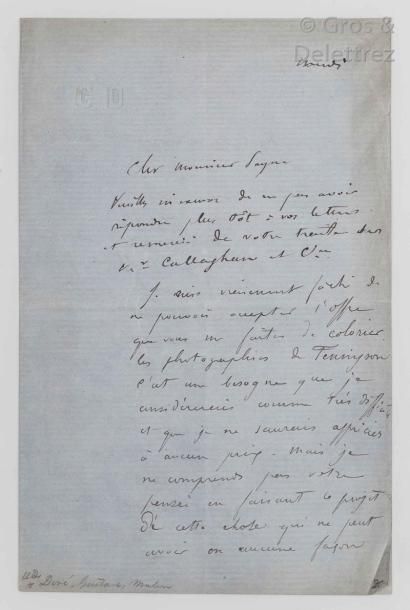 © Gros &
Delettrez
Mardi
G D
Cher Monsieur Payne
Veuillez m'excuser de ne pas avoir
répondre plus tôt à vos lettres
et remercié de votre traite sur
Callaghan et Cie
Je suis vraiment fâché de
ne pouvoir accepter l'offre
que vous me faites de colorier
les photographies de Tennyson
c'est une besogne que je
considérerais comme très difficile
et que je ne saurais apprécier
à aucun prix. Mais je
ne comprends pas votre
pensée en faisant ce projet
de cette chose qui ne peut
avoir en aucune façon
Doré, Gustave,